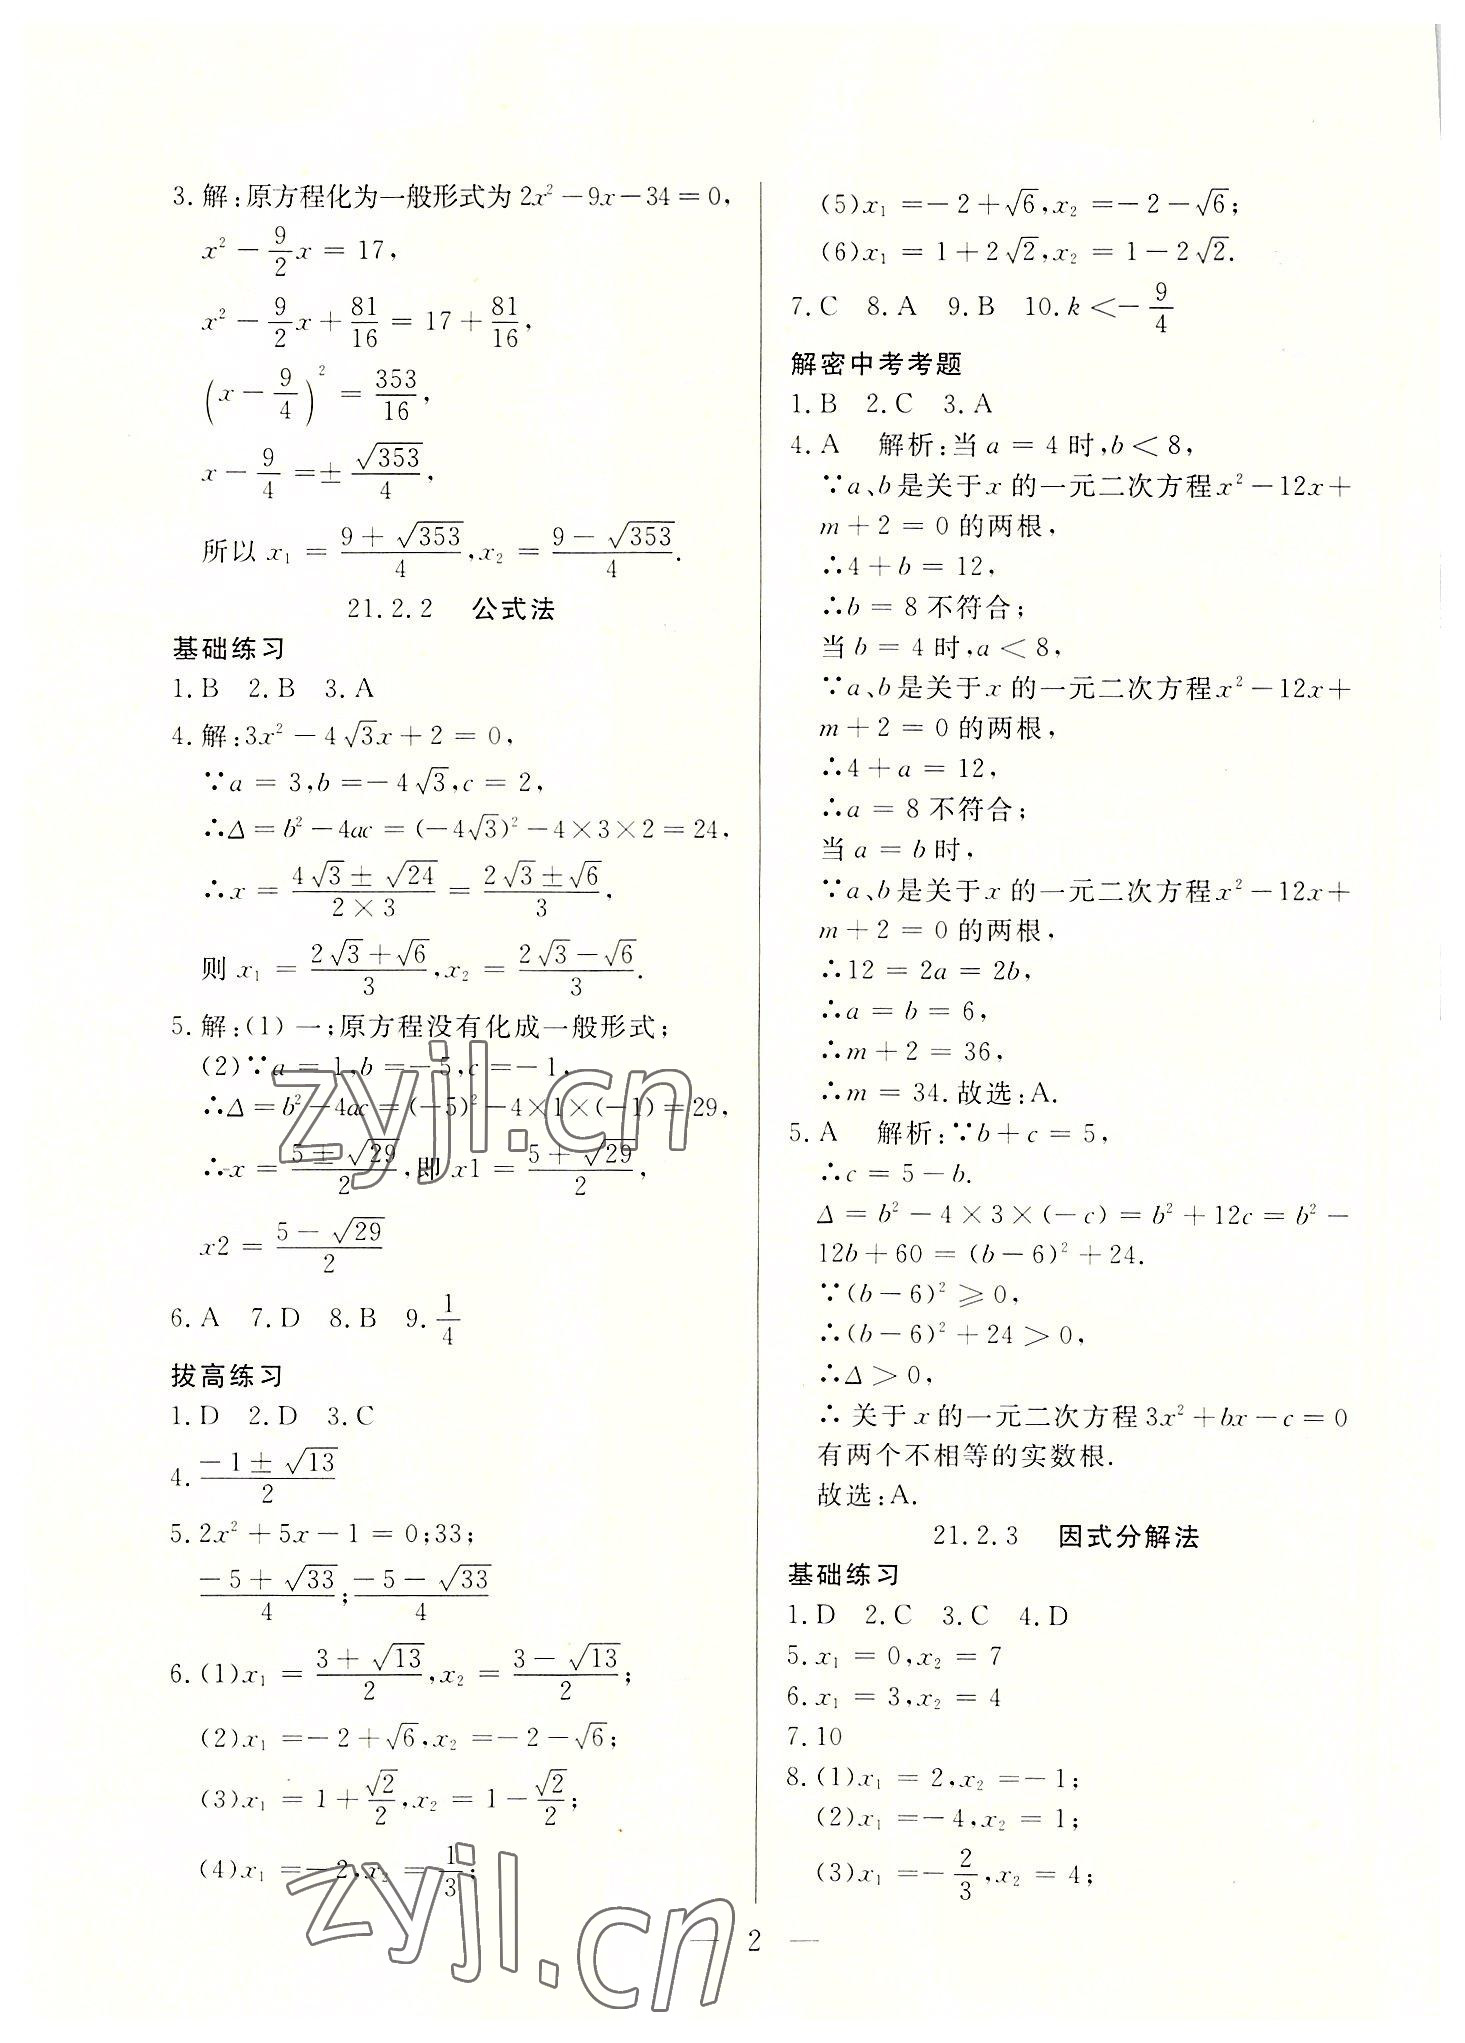 3.解:原方程化为一般形式为 2x²－9x－34＝0,
x²－9/2x＝17,
x²－9/2x＋81/16＝17＋81/16,
(x－9/4)²＝353/16,
x－9/4＝±√353/4,
所以 x₁＝(9＋√353)/4,x₂＝(9－√353)/4.
21.2.2 公式法
基础练习
1.B 2.B 3.A
4.解:3x²－4√3x＋2＝0,
∵a＝3,b＝－4√3,c＝2,
∴Δ＝b²－4ac＝(－4√3)²－4×3×2＝24,
∴x＝(4√3±√24)/(2×3)＝(2√3±√6)/3,
则 x₁＝(2√3＋√6)/3,x₂＝(2√3－√6)/3.
5.解:(1)一;原方程没有化成一般形式;
(2)∵a＝1,b＝－5,c＝－1,
∴Δ＝b²－4ac＝(－5)²－4×1×(－1)＝29,
∴x＝(5±√29)/2,即 x1＝(5＋√29)/2,
x2＝(5－√29)/2
6.A 7.D 8.B 9.1/4
拔高练习
1.D 2.D 3.C
4.(－1±√13)/2
5.2x²＋5x－1＝0;33;
(－5＋√33)/4;(－5－√33)/4
6.(1)x₁＝(3＋√13)/2,x₂＝(3－√13)/2;
(2)x₁＝－2＋√6,x₂＝－2－√6;
(3)x₁＝1＋√2/2,x₂＝1－√2/2;
(4)x₁＝－2,x₂＝1/3;
(5)x₁＝－2＋√6,x₂＝－2－√6;
(6)x₁＝1＋2√2,x₂＝1－2√2.
7.C 8.A 9.B 10.k＜－9/4
解密中考考题
1.B 2.C 3.A
4.A 解析:当 a＝4 时,b＜8,
∵a、b是关于x的一元二次方程x²－12x＋
m＋2＝0的两根,
∴4＋b＝12,
∴b＝8不符合;
当 b＝4 时,a＜8,
∵a、b是关于x的一元二次方程x²－12x＋
m＋2＝0的两根,
∴4＋a＝12,
∴a＝8不符合;
当 a＝b时,
∵a、b是关于x的一元二次方程x²－12x＋
m＋2＝0的两根,
∴12＝2a＝2b,
∴a＝b＝6,
∴m＋2＝36,
∴m＝34.故选:A.
5.A 解析:∵b＋c＝5,
∴c＝5－b.
Δ＝b²－4×3×(－c)＝b²＋12c＝b²－
12b＋60＝(b－6)²＋24.
∵(b－6)²⩾0,
∴(b－6)²＋24＞0,
∴Δ＞0,
∴关于x的一元二次方程3x²＋bx－c＝0
有两个不相等的实数根.
故选:A.
21.2.3 因式分解法
基础练习
1.D 2.C 3.C 4.D
5.x₁＝0,x₂＝7
6.x₁＝3,x₂＝4
7.10
8.(1)x₁＝2,x₂＝－1;
(2)x₁＝－4,x₂＝1;
(3)x₁＝－2/3,x₂＝4;
— 2 —
zyjl.cn
zyjl.cn